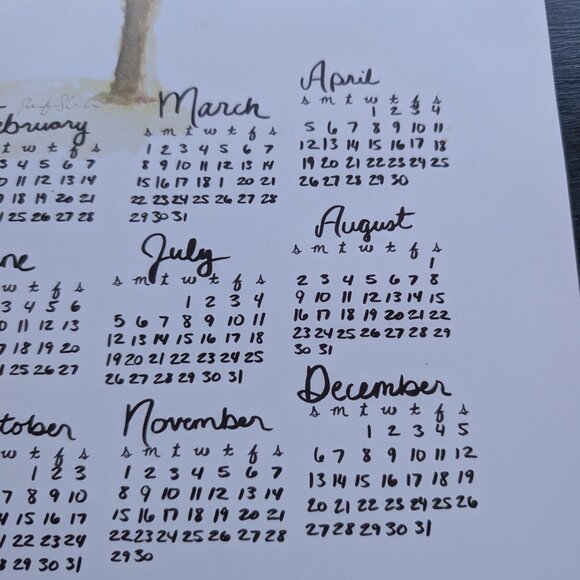 ebruary
t w t f s
3 4 5 6 7
10 11 12 13 14
18 19 20 21
25 26 27 28
March
s m t w t f s
1 2 3 4 5 6 7
8 9 10 11 12 13 14
15 16 17 18 1 20 21
22 23 24 25 26 27 28
29 30 31
April
s m t w t f s
1 2 3 4
5 6 7 8 9 10 11
12 13 14 15 16 17 18
19 20 21 22 23 24 25
26 27 28 29 30
ne
w t f s
3 4 5 6
11 12 13
18 19 20
25 26 27
July
s m t w t f s
1 2 3 4
5 6 7 8 9 10 11
12 13 14 15 16 17 18
19 20 21 22 23 24 25
26 27 28 29 30 31
August
s m t w t f s
1
2 3 4 5 6 7 8
9 10 11 12 13 14 15
16 17 18 19 20 21 22
23 24 25 26 27 28 29
30 31
tober
w t f s
1 2 3
7 8 9 10
15 16 17
22 23 24
29 30 31
November
s m t w t f s
1 2 3 4 5 6 7
8 9 10 11 12 13 14
15 16 17 18 19 20 21
22 23 24 25 26 27 28
29 30
December
s m t w t f s
1 2 3 4 5
6 7 8 9 10 11 12
13 14 15 16 17 18 19
20 21 22 23 24 25 26
27 28 29 30 31